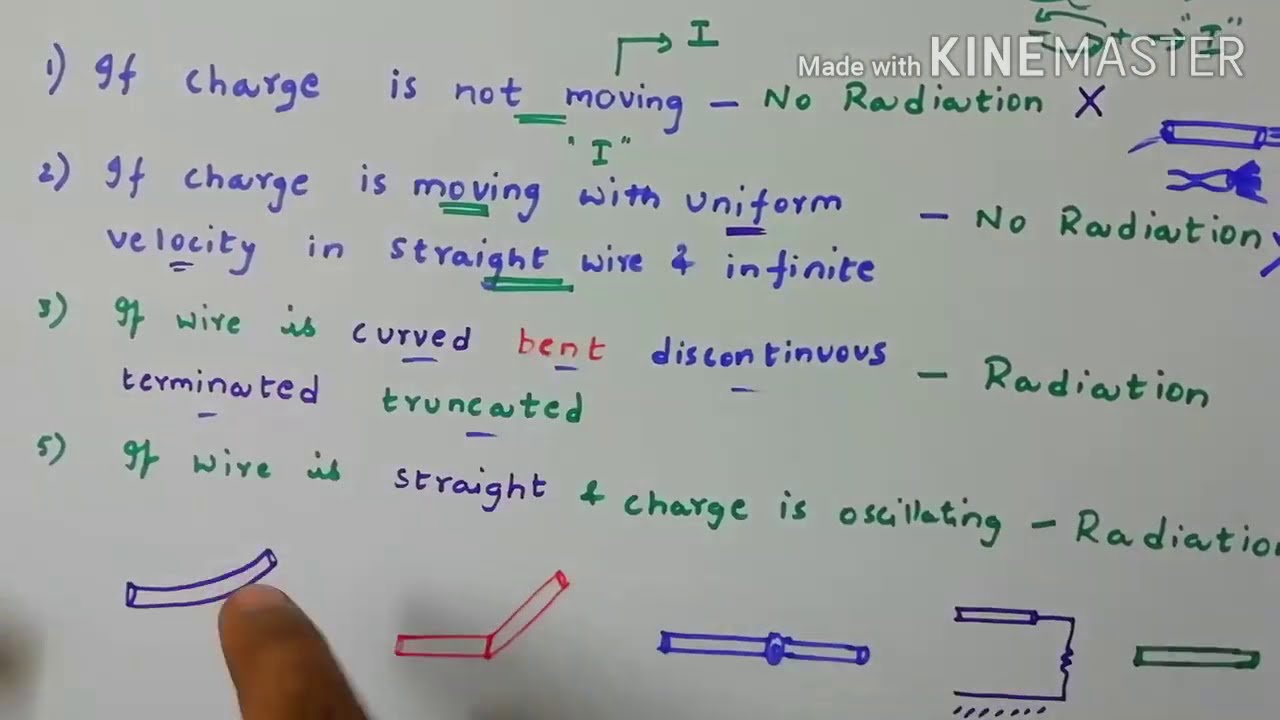 I
+ → "I"
Made with KINEMASTER
1) If charge is not moving – No Radiation X
"I"
2) If charge is moving with uniform – No Radiation X
velocity in straight wire & infinite
3) If wire is curved bent discontinuous – Radiation
terminated truncated
5) If wire is straight & charge is oscillating – Radiation